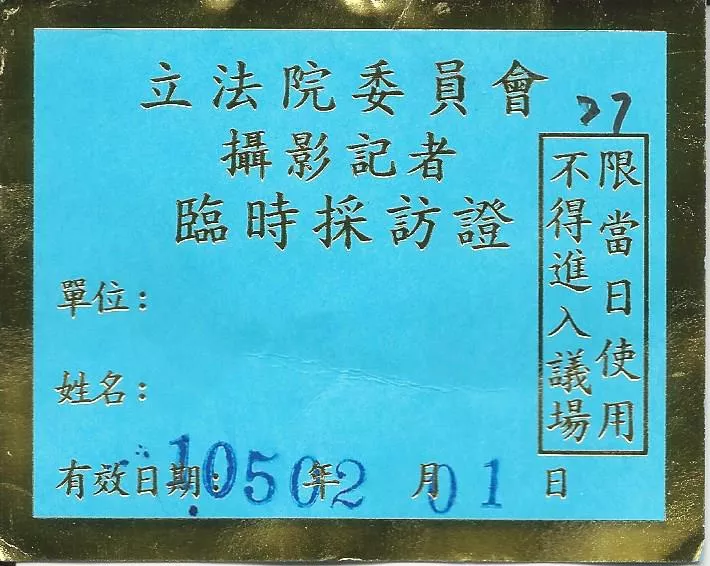 立法院委員會
攝影記者
臨時採訪證
27
限當日使用
不得進入議場
單位：
姓名：
有效日期：105年02月01日